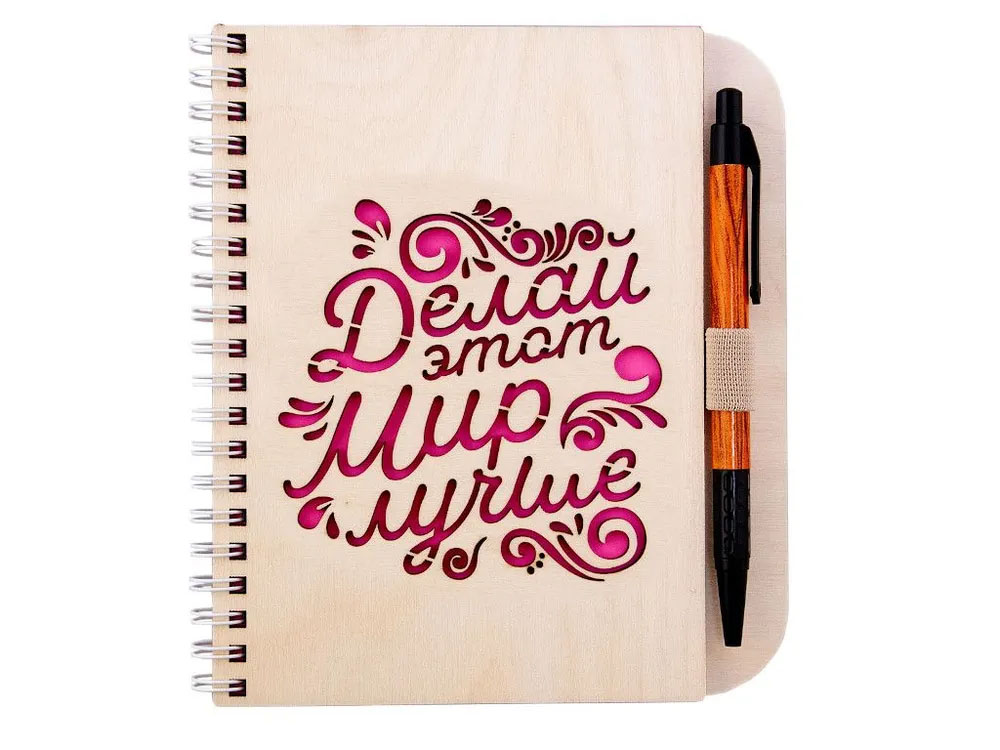 Делай
этот
Мир
лучше